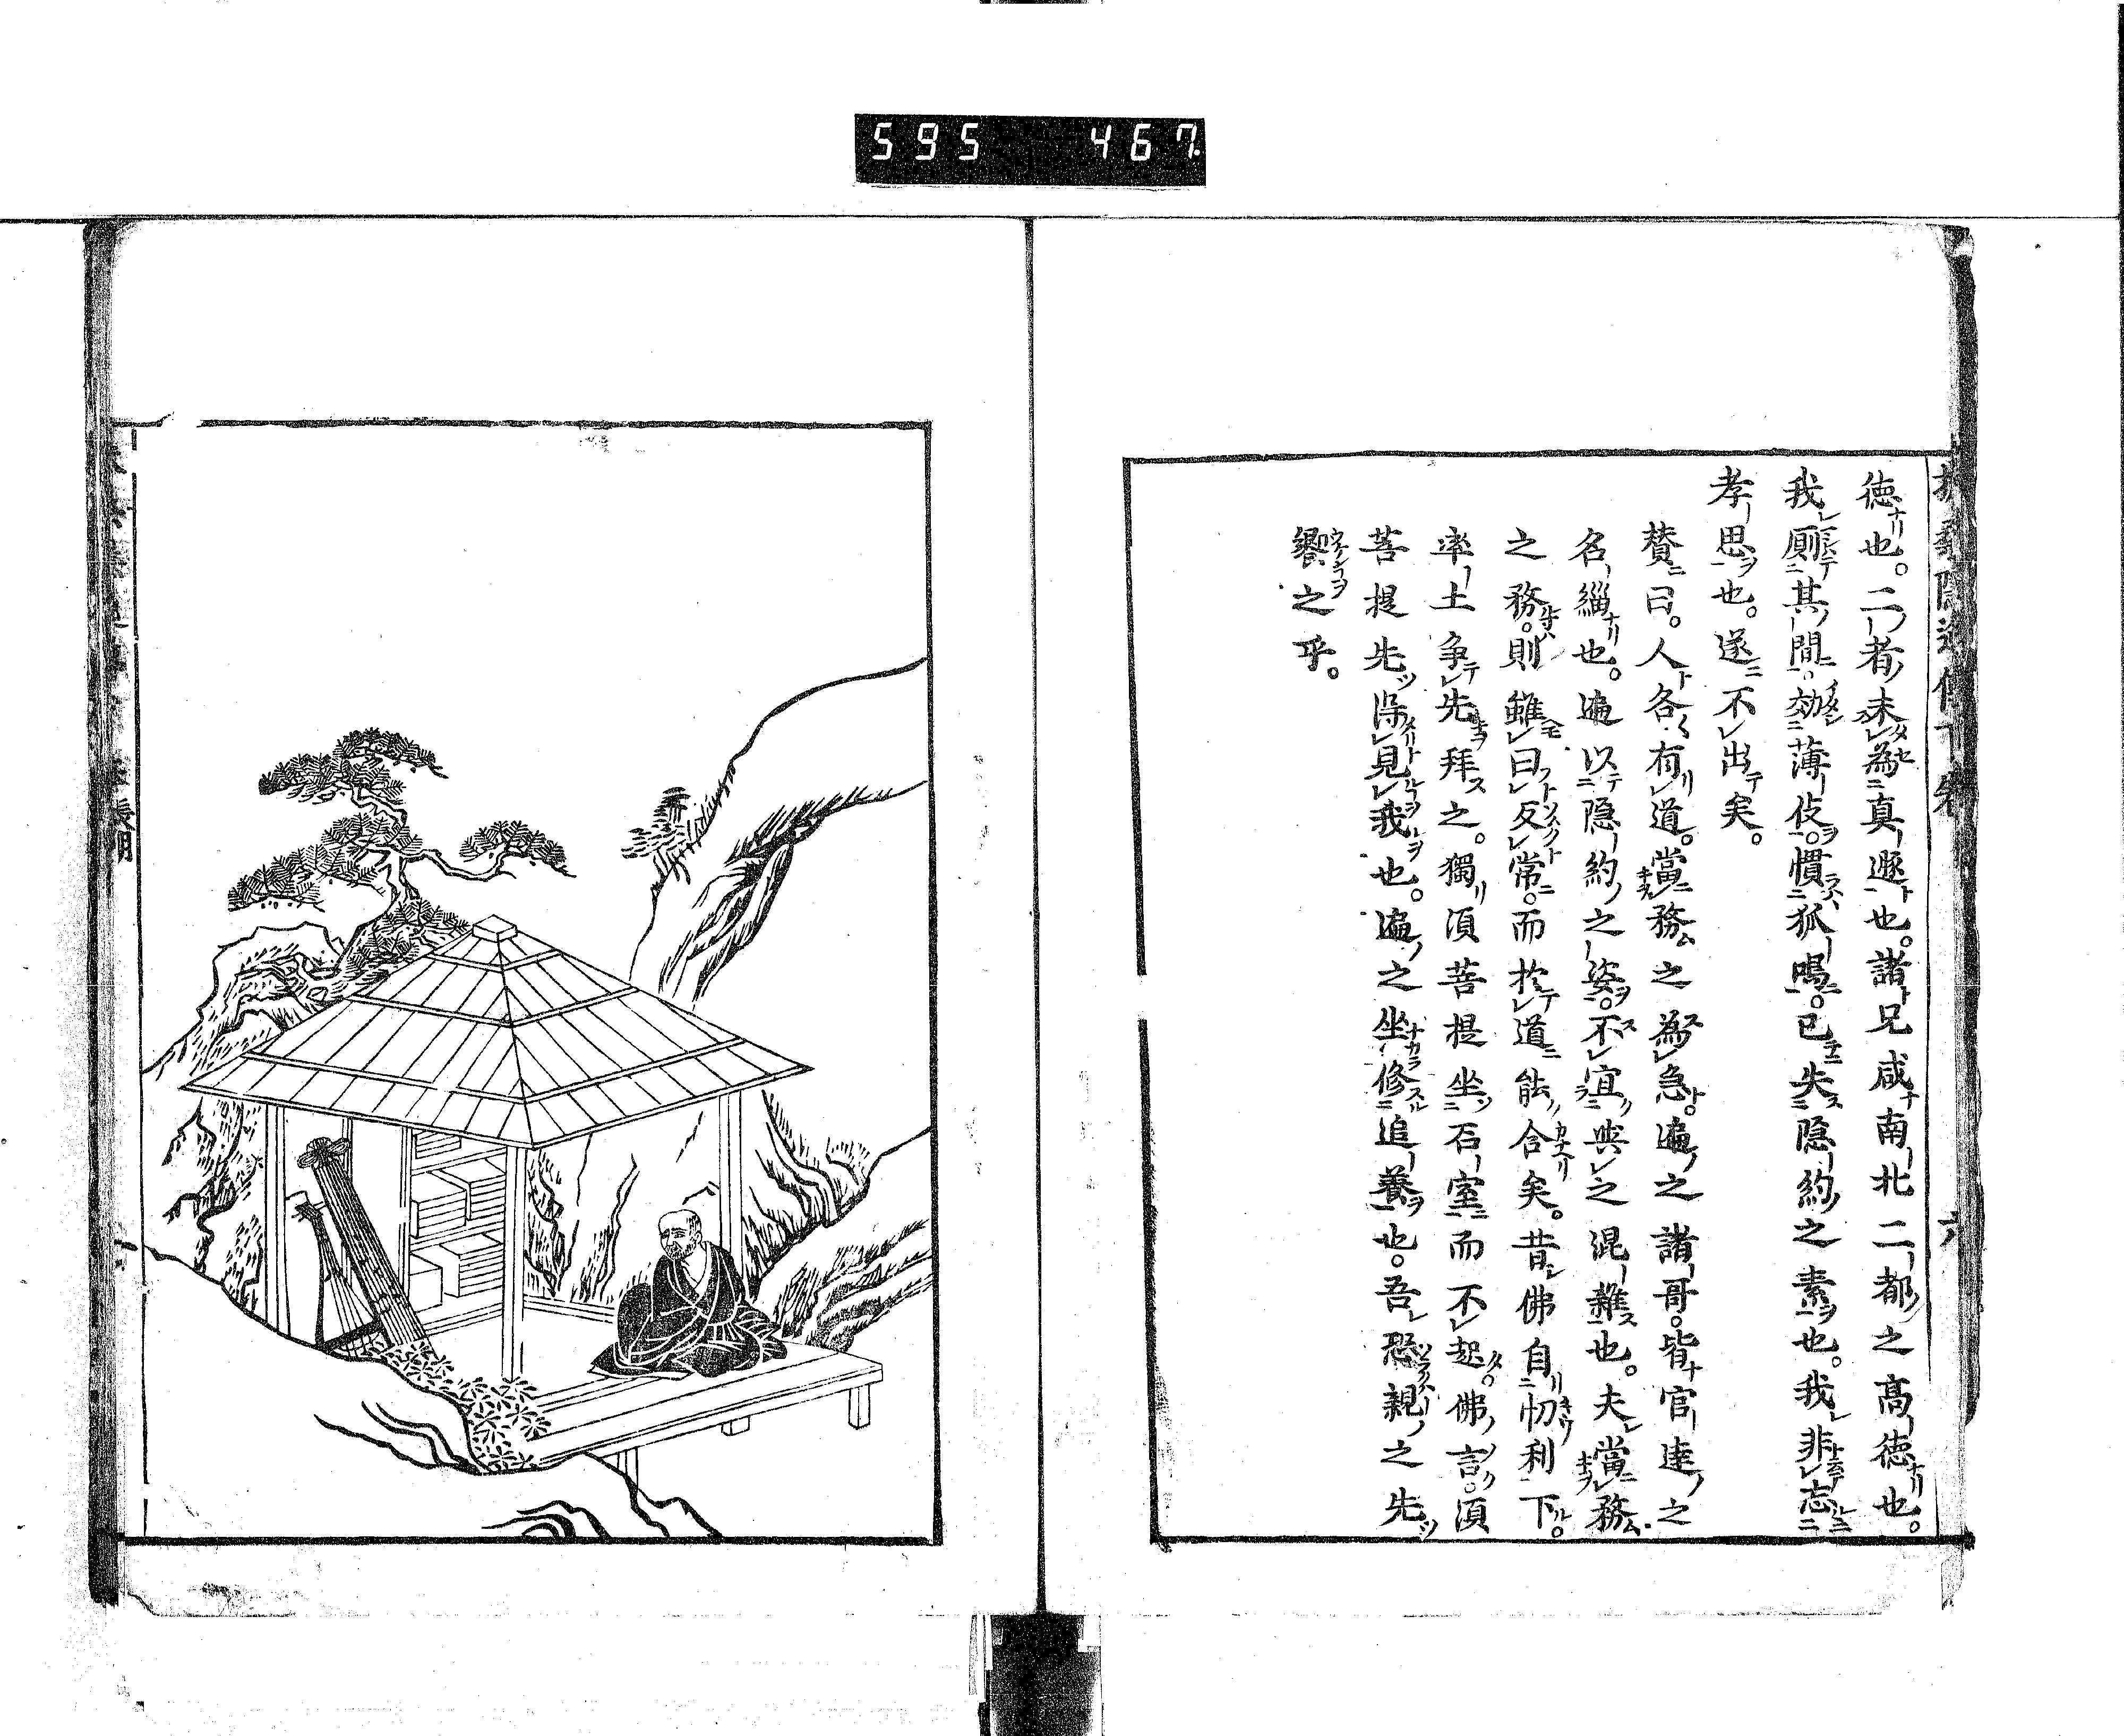 595 467
扶桑隠逸傳下卷 六
徳也。二者未為真遯也。諸兄咸南北二都之髙徳也。
我厠其間。効薄伎。慣狐鳴。已失隐約之素也。我非志
孝思也。遂不出矣。
賛曰。人各有道。當務之為急。遍之諸哥。皆官逹之
名緇也。遍以隐約之姿。不宜與之混雜也。夫當務
之務。則雖曰反常。而於道能合矣。昔佛自忉利下。
率土争先拜之。獨須菩提坐石室而不起。佛言。須
菩提先得見我也。遍之坐修追養也。吾恐親之先
饗之乎。